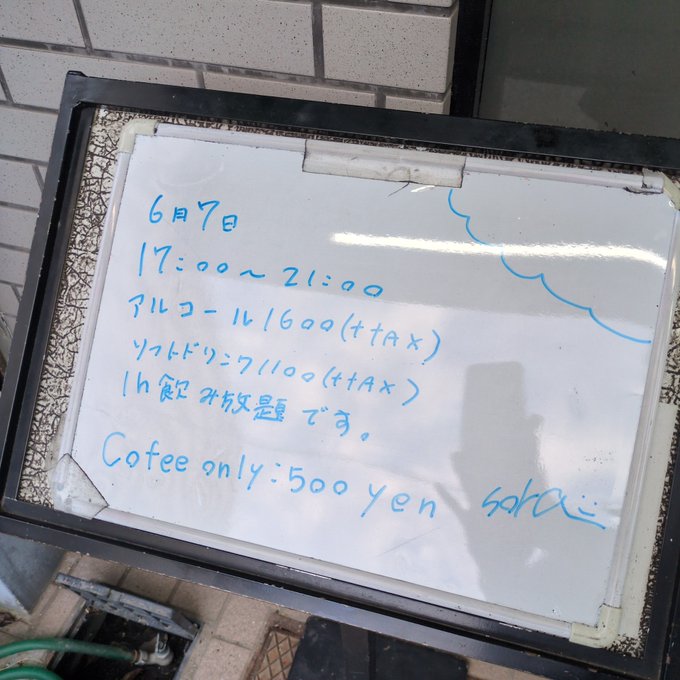 6月7日
17:00～21:00
アルコール1600(+tAX)
ソフトドリンク1100(+tAX)
1h飲み放題です。
Cofee only:500 yen
sora